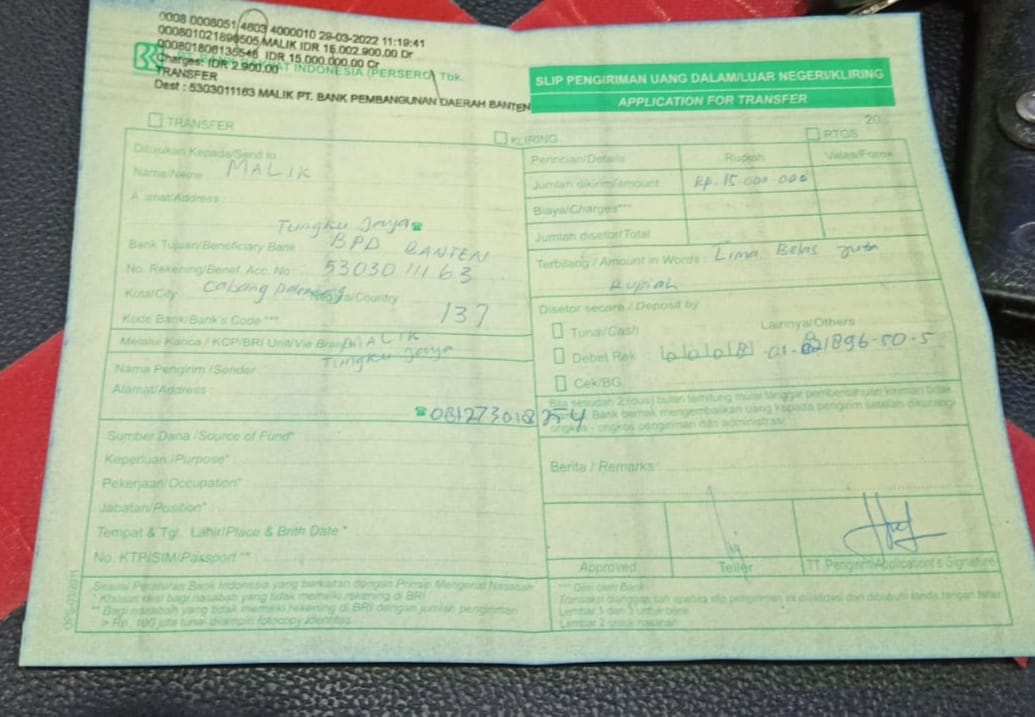 0008 0008051 4803 4000010 29-03-2022 11:19:41
000801021896505 MALIK IDR 15.002.900.00 Dr
000801806135548 IDR 15.000.000.00 Cr
Charges: IDR 2.900.00
INDONESIA (PERSERO) Tbk.
TRANSFER
Dest : 5303011163 MALIK PT. BANK PEMBANGUNAN DAERAH BANTEN
SLIP PENGIRIMAN UANG DALAM/LUAR NEGERI/KLIRING
APPLICATION FOR TRANSFER
20
TRANSFER
KLIRING
RTGS
Ditujukan Kepada/Send to
Nama/Name MALIK
Alamat/Address
Tungku Jaya
Bank Tujuan/Beneficiary Bank BPD BANTEN
No. Rekening/Benef. Acc. No 5303011163
Kota/City Cabang /Country
Kode Bank/Bank's Code *** 137
Melalui Kanca / KCP/BRI Unit/Via Branch
MALIK
Nama Pengirim /Sender Tungku Jaya
Alamat/Address
Sumber Dana /Source of Fund*
Keperluan /Purpose* :
Pekerjaan/Occupation*
Jabatan/Position*
Tempat & Tgl. Lahir/Place & Brith Date *
No. KTP/SIM/Passport **
Sesuai Peraturan Bank Indonesia yang berkaitan dengan Prinsip Mengenal Nasabah
* Khusus diisi bagi nasabah yang tidak memiliki rekening di BRI
** Bagi nasabah yang tidak memiliki rekening di BRI dengan jumlah pengiriman
> Rp. 100 juta tunai disimpan fotocopy identitas
Perincian/Details Rupiah Valas/Forex
Jumlah dikirim/amount Rp. 15.000.000
Biaya/Charges***
Jumlah disetor/Total
Terbilang / Amount in Words : Lima Belas Juta
Rupiah
Disetor secara / Deposit by
Tunai/Cash Lainnya/Others
Debet Rek
Cek/BG
Bila sesudah 2 (dua) bulan terhitung mulai tanggal pemberitahuan kiriman tidak
Bank berhak mengembalikan uang kepada pengirim setelah dikurangi
ongkos - ongkos pengiriman dan administrasi
Berita / Remarks :
Approved Teller TT. Pengirim/Application's Signature
*** Diisi oleh Bank
Transaksi dianggap sah apabila slip pengiriman ini divalidasi dan dibubuhi tanda tangan teller
Lembar 1 dan 3 untuk bank
Lembar 2 untuk nasabah